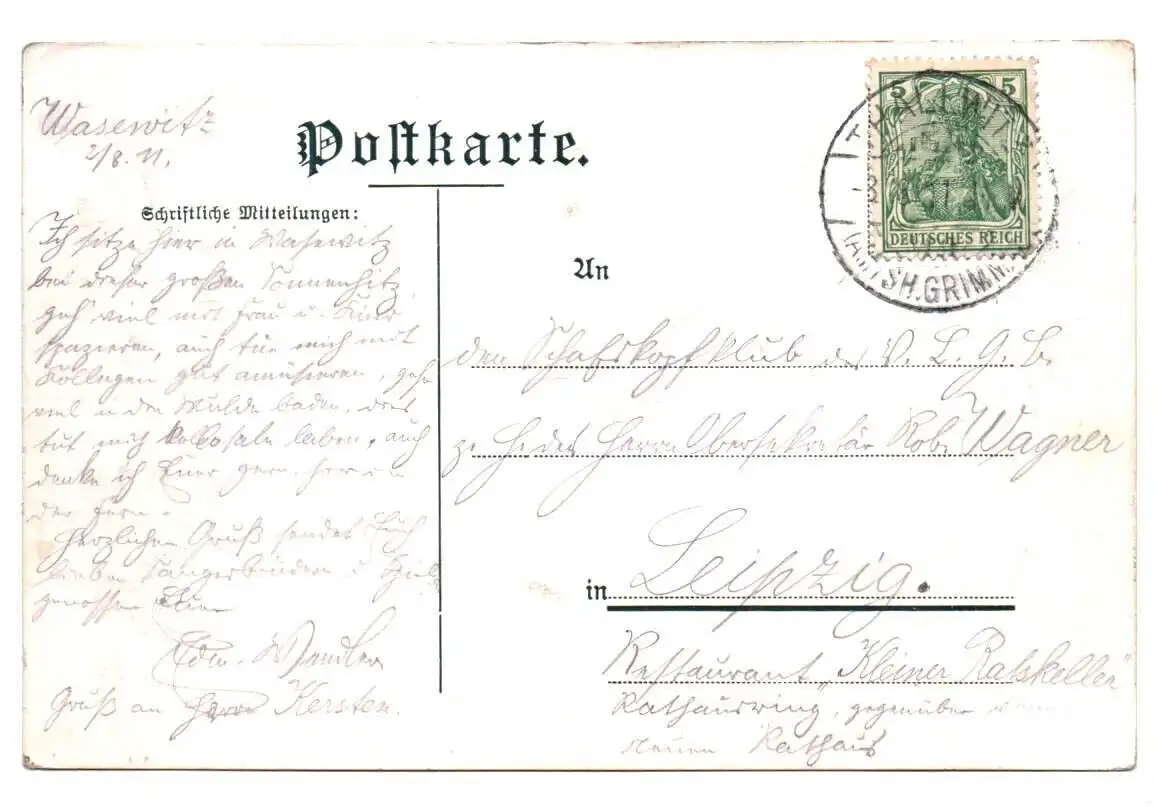 Wasewitz
2/8. 11.
Postkarte.
Schriftliche Mitteilungen:
Ich sitze hier in Wasewitz
bei dieser großen Sonnenhitz,
geh viel mit Frau u. Kind
spazieren, auch tue mich mit
Kollegen gut amüsieren, gehe
viel in der Mulde baden, dies
tut mich kolossale laben, auch
denke ich Eurer gern, hier in
der Fern.
Herzlichen Gruß sendet Euch
lieben Sangesbrüdern u. Spiel
genossen Euer
Edm. Wendler
Gruß an Herrn Kersten.
5 5
DEUTSCHES REICH
THALLWITZ
(AMTSH. GRIMMA)
An
den Schafskopfklub des V. L. G. B.
z. H. des Herrn Obersekretär Rob. Wagner
in Leipzig.
Restaurant „Kleiner Ratskeller"
Rathausring, gegenüber vom
neuen Rathaus